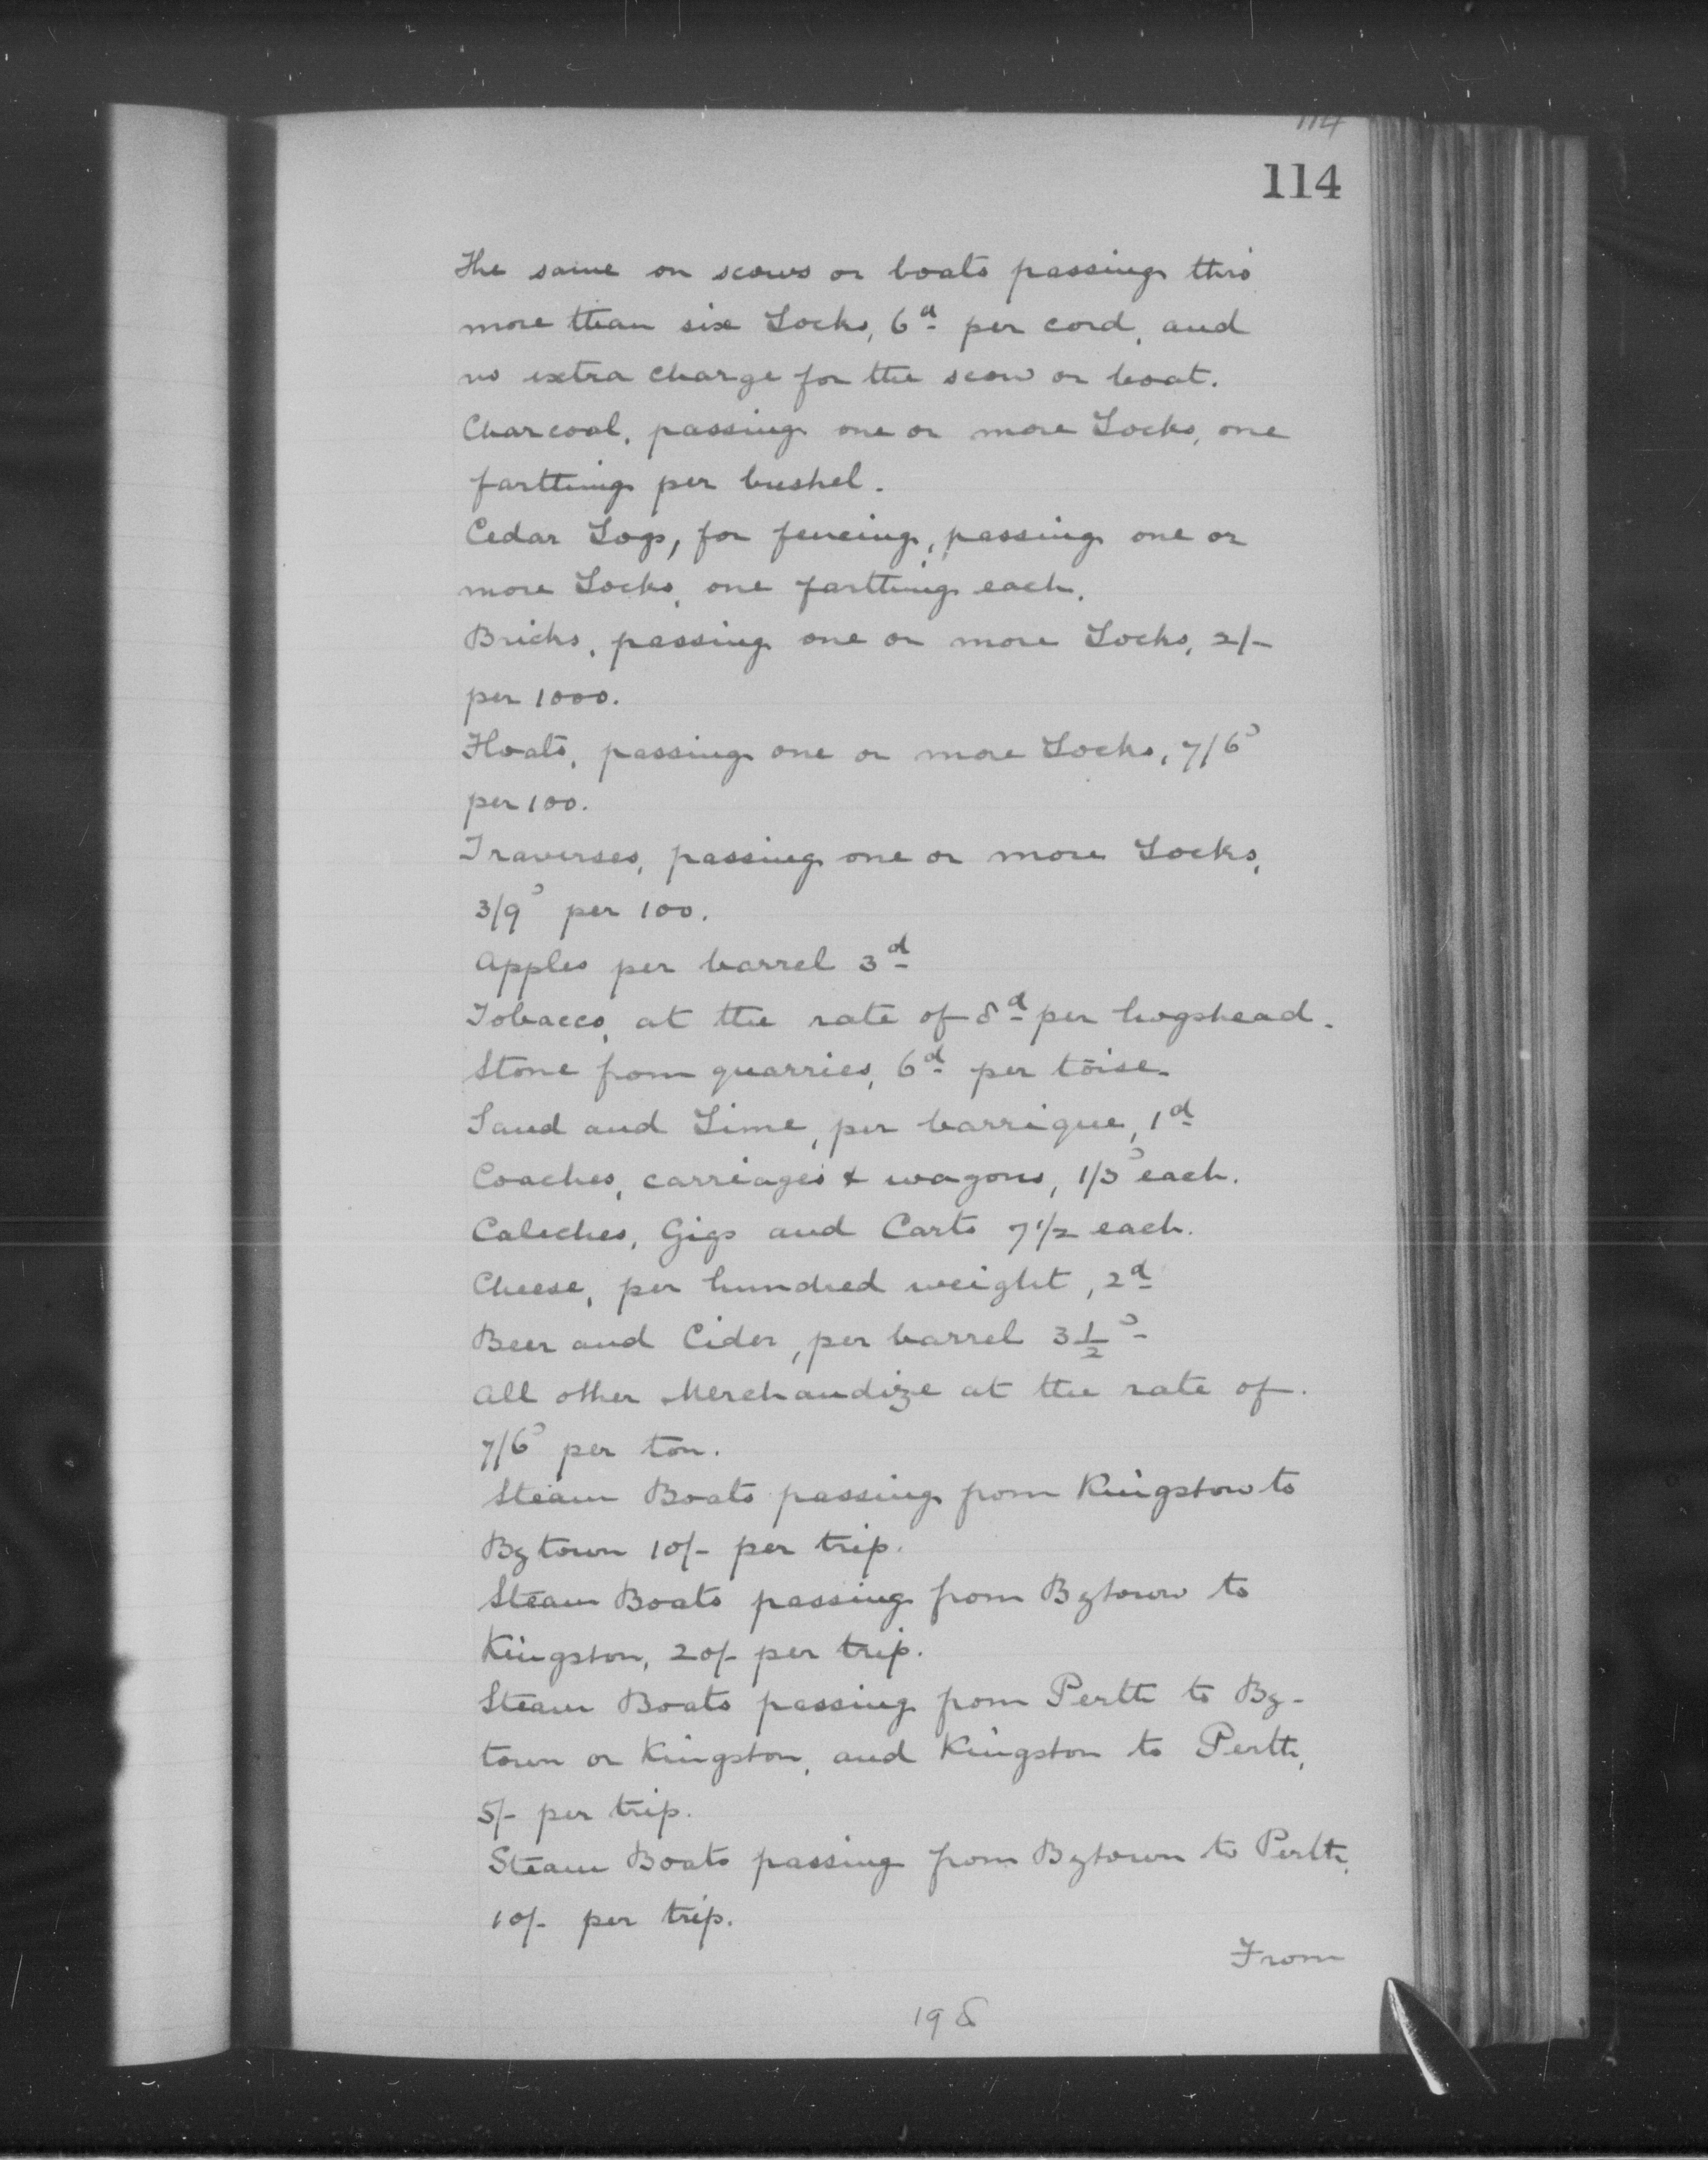 114
114
The same on scows or boats passing thro'
more than six Locks, 6d per cord, and
no extra charge for the scow or boat.
Charcoal, passing one or more Locks, one
farthing per bushel.
Cedar Logs, for fencing, passing one or
more Locks, one farthing each.
Bricks, passing one or more Locks, 2/-
per 1000.
Floats, passing one or more Locks, 7/6d
per 100.
Traverses, passing one or more Locks,
3/9d per 100.
Apples per barrel 3d
Tobacco, at the rate of 8d per hogshead.
Stone from quarries, 6d per toise.
Sand and Lime, per barrique, 1d
Coaches, carriages & wagons, 1/3d each.
Caleches, Gigs and Carts 7 1/2 each.
Cheese, per hundred weight, 2d
Beer and Cider, per barrel 3 1/2d
All other Merchandize at the rate of
7/6d per ton.
Steam Boats passing from Kingston to
Bytown 10/- per trip.
Steam Boats passing from Bytown to
Kingston, 20/- per trip.
Steam Boats passing from Perth to By-
town or Kingston, and Kingston to Perth,
5/- per trip.
Steam Boats passing from Bytown to Perth,
10/- per trip.
From
198